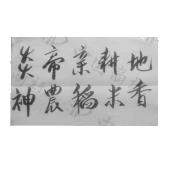 炎帝亲耕地
神農稻米香